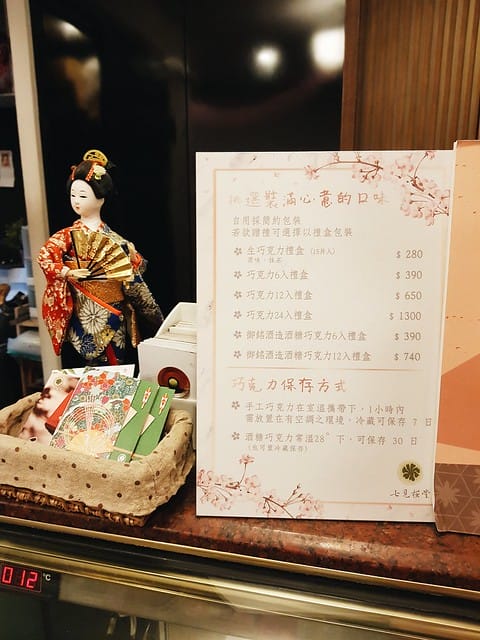 挑選裝滿心意的口味
自用採簡約包裝
若欲贈禮可選擇以禮盒包裝
生巧克力禮盒 (15片入) $ 280
原味、抹茶
巧克力6入禮盒 $ 390
巧克力12入禮盒 $ 650
巧克力24入禮盒 $ 1300
御銘酒造酒糖巧克力6入禮盒 $ 390
御銘酒造酒糖巧克力12入禮盒 $ 740
巧克力保存方式
手工巧克力在室溫攜帶下，1小時內
需放置在有空調之環境，冷藏可保存 7 日
酒糖巧克力常溫28° 下，可保存 30 日
(也可置冷藏保存)
七見桜堂
012 °C